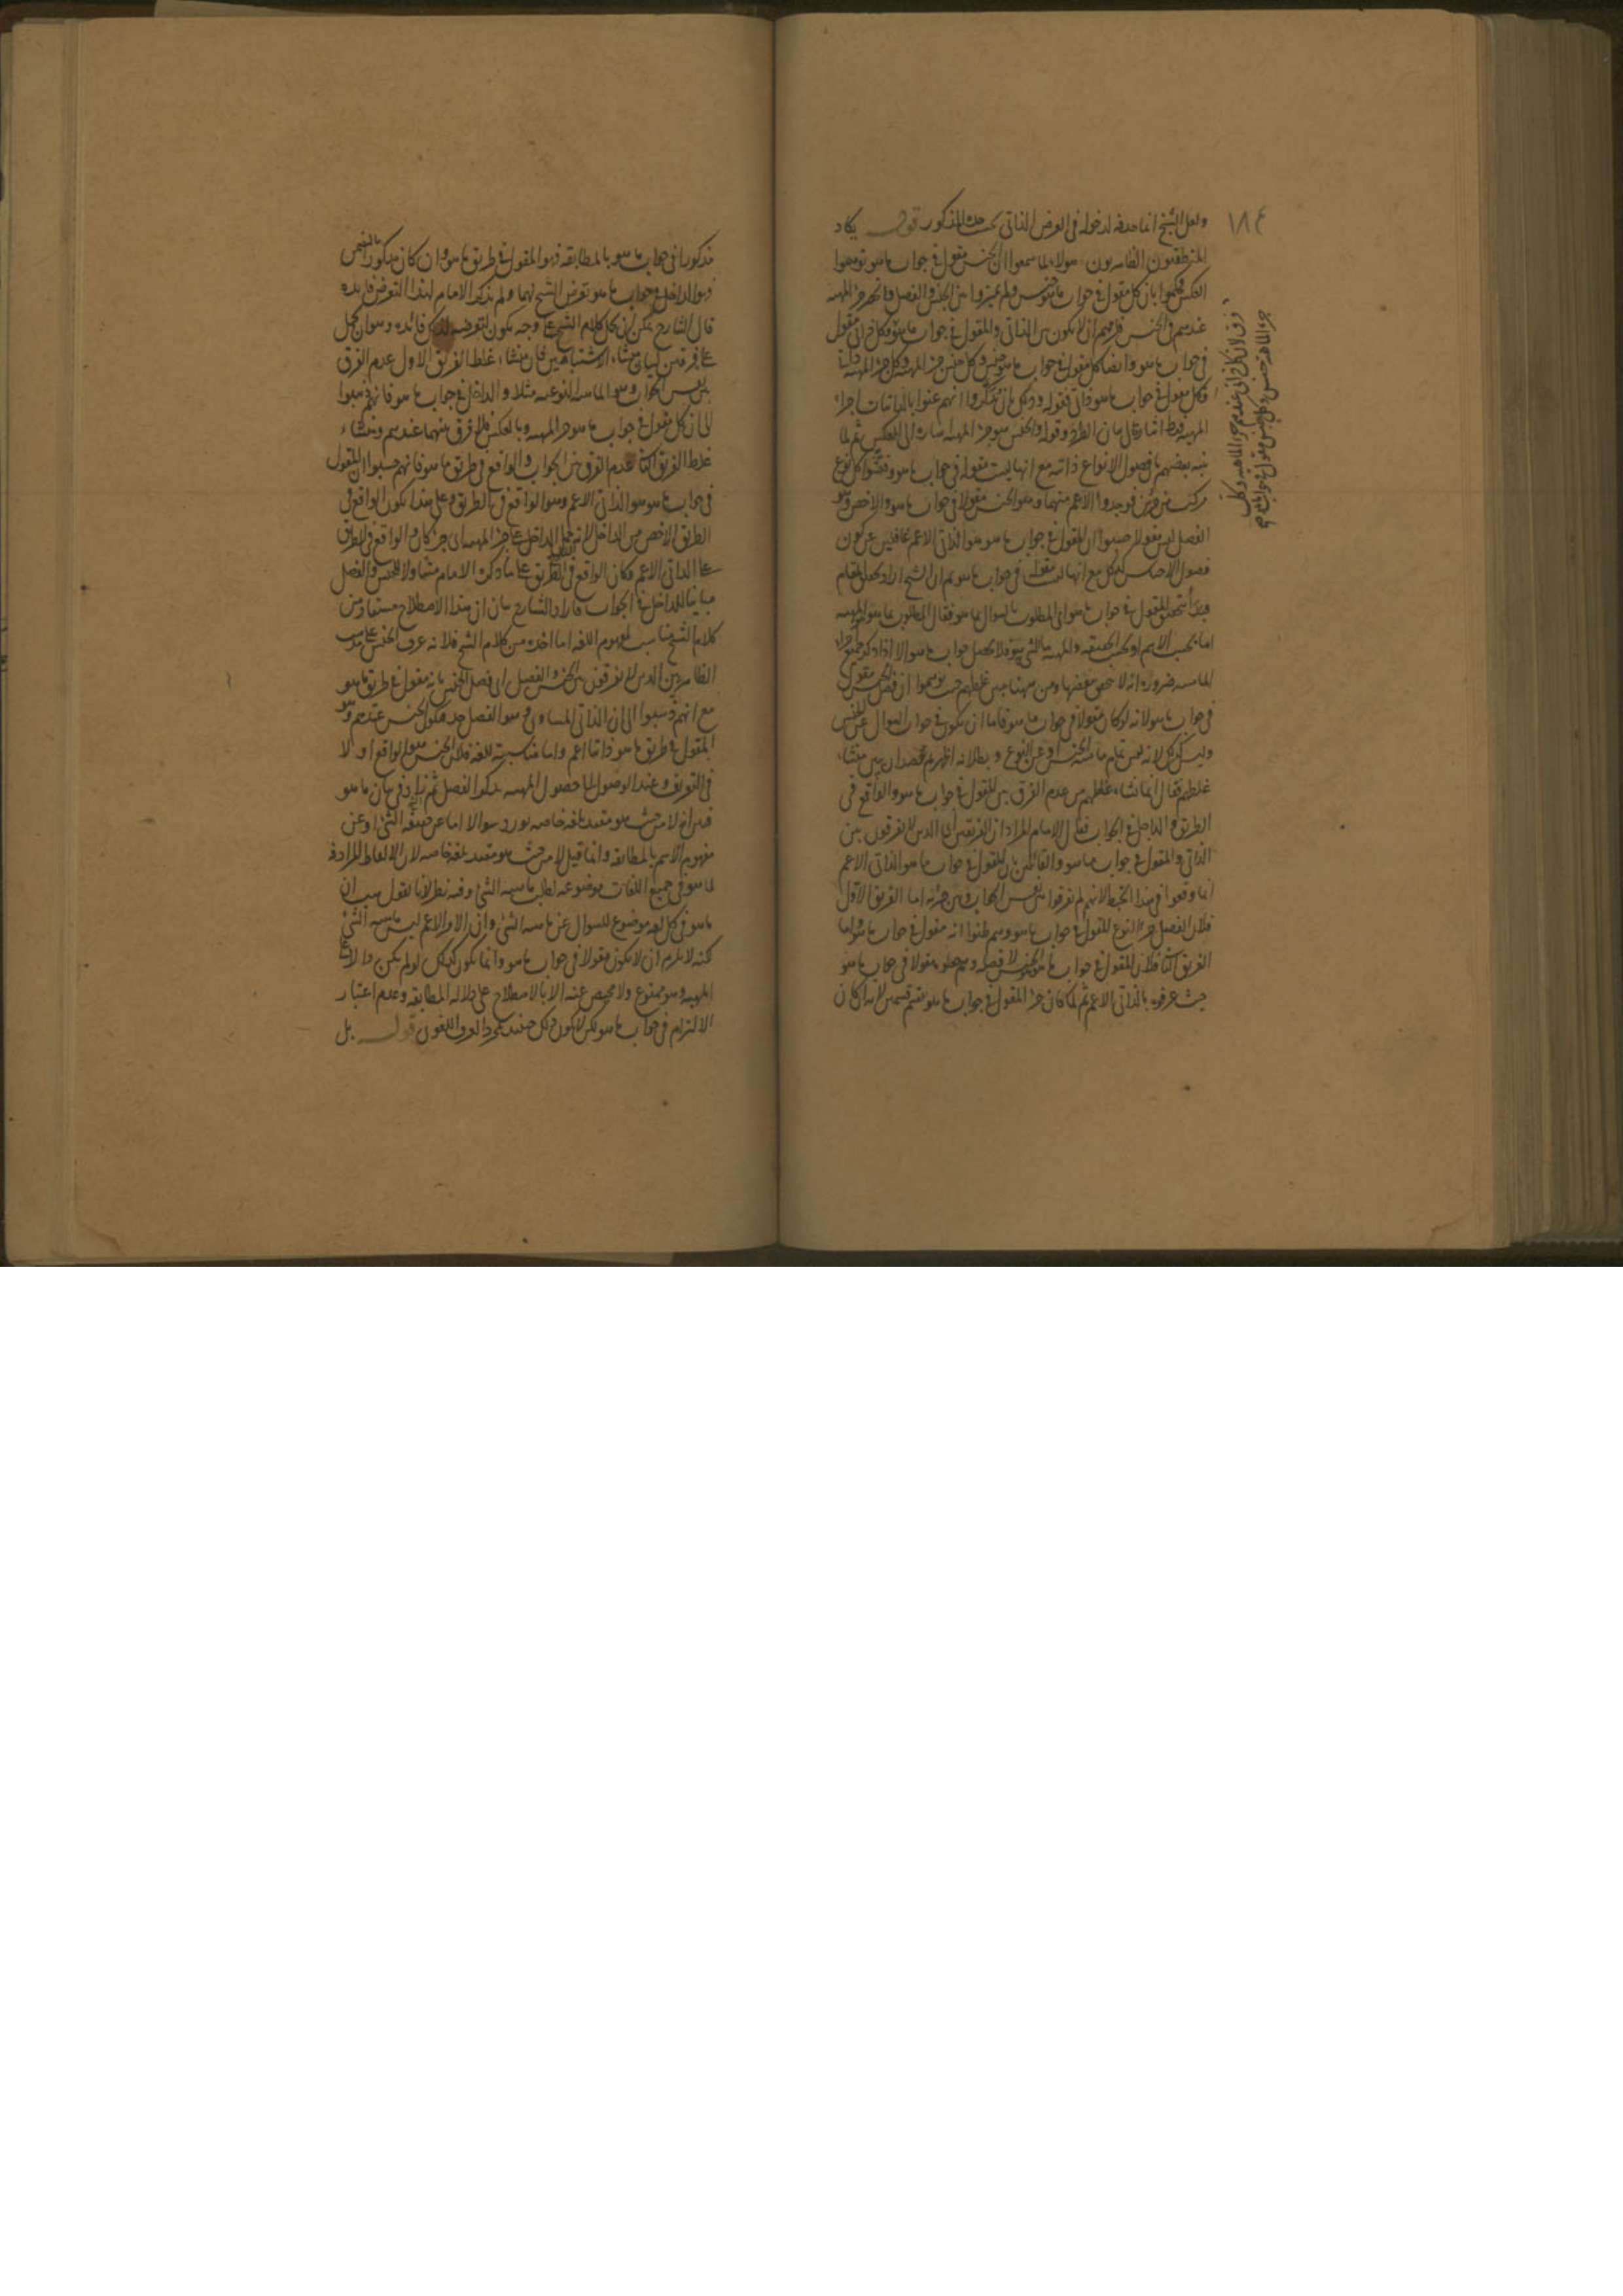 ١٨٤
ولعل الشيخ انما حذفه لدخوله فى العرض الذاتى تحت حده المذكور قوله يكاد
المنطقيون الظاهريون هولاء لما سمعوا ان الجنس مقول فى جواب ما هو توهموا
العكس وحكموا بان كل مقول فى جواب ما هو جنس ولم يميزوا بين الجنس والفصل وانحصر جزء المهية
عندهم فى الجنس فلزمهم ان لا يكون بين الذاتى والمقول فى جواب ما هو فرق لان كل ذاتى مقول
فى جواب ما هو وايضا كل مقول فى جواب ما هو جنس وكل جنس جزء المهية وكل جزء المهية ذاتى
فكل مقول فى جواب ما هو ذاتى فقوله وذلك بان تذكروا انهم عنوا بالذاتيات اجزاء
المهية فقط اشارة الى بيان الطرد وقوله والجنس هو جزء المهية اشارة الى العكس ثم لما
تنبه بعضهم بان فصول الانواع ذاتية مع انها ليست مقولة فى جواب ما هو وفتشوا كل نوع
مركب من جزئين فوجدوا الاعم منهما وهو الجنس مقولا فى جواب ما هو والاخص وهو
الفصل ليس مقولا حسبوا ان المقول فى جواب ما هو هو الذاتى الاعم غافلين عن كون
فصول الاجناس كذلك مع انها ليست مقولة فى جواب ما هو ثم ان الشيخ اراد
تحقيق المقول فى جواب ما هو اى المطلوب بالسوال بما هو فقال المطلوب بما هو المهية
اما بحسب الاسم او بحسب الحقيقة والمهية ما الشئ به هو فلا يحصل جواب ما هو الا اذا ذكر جميع اجزاء
الماهية ضرورة انه لا تتحقق ببعضها ومن ههنا يتبين غلطهم حيث توهموا ان فصل الجنس مقول
فى جواب ما هو لانه لو كان مقولا فى جواب ما هو فاما ان يكون فى جواب السوال عن الجنس
وليس كذلك لانه ليس تمام ماهية الجنس او عن النوع وبطلانه اظهر ثم قصد ان يبين منشاء
غلطهم فقال انما نشاء غلطهم من عدم الفرق بين المقول فى جواب ما هو والواقع فى
الطريق والداخل فى الجواب فقال الامام المراد ان الفريقين اى الذين لا يفرقون بين
الذاتى والمقول فى جواب ما هو والقائلين بان المقول فى جواب ما هو الذاتى الاعم
انما وقعوا فى هذا الخبط لانهم لم يفرقوا بين نفس الجواب وبين جزئه اما الفريق الاول
فلان الفصل جزء النوع المقول فى جواب ما هو وهم ظنوا انه مقول فى جواب ما هو واما
الفريق الثانى فلان المقول فى جواب ما هو الجنس لا فصله وهم جعلوه مقولا فى جواب ما هو
حيث عرفوه بالذاتى الاعم ثم لما كان جزء المقول فى جواب ما هو ينقسم قسمين لانه ان كان
فرق لان كل ذاتى عندهم جزء الماهية وكل
جزء الماهية جنس وكل جنس مقول فى جواب ما هو
مذكورا فى جواب ما هو بالمطابقة فهو المقول فى طريق ما هو وان كان مذكورا بالتضمن
فهو الداخل فى جواب ما هو تعرض الشيخ لهما ولم يذكر الامام لهذا التعرض فايدة
قال الشارح يمكن ان يحمل كلام الشيخ على وجه يكون لتعرضه لذلك فائدة وهو ان يحمل
على فرقتين لبيان منشاء الاشتباهين فان منشاء غلط الفريق الاول عدم الفرق
بين نفس الجواب وهو الماهية النوعية مثلا والداخل فى جواب ما هو فانهم ذهبوا
الى ان كل مقول فى جواب ما هو جزء المهية وبالعكس فلا فرق بينهما عندهم ومنشاء
غلط الفريق الثانى عدم الفرق بين الجواب والواقع فى طريق ما هو فانهم حسبوا ان المقول
فى جواب ما هو هو الذاتى الاعم وهو الواقع فى الطريق وعلى هذا يكون الواقع فى
الطريق الاخص من الداخل لانه حمل الداخل على جزء المهية اى جزء كان والواقع فى الطريق
على الذاتى الاعم فكان الواقع فى الطريق على ما ذكره الامام متناولا للجنس والفصل
مباينا للداخل فى الجواب فاراد الشارح بيان ان هذا الاصطلاح مستفاد من
كلام الشيخ مناسب لمفهوم اللغة اما اخذه من كلام الشيخ فلانه عرف الجنس على مذهب
الظاهريين الذين لا يفرقون بين الجنس والفصل اى فصل الجنس بانه مقول فى طريق ما هو
مع انهم ذهبوا الى ان الذاتى المساوى هو الفصل فيكون الجنس عندهم هو
المقول فى طريق ما هو ذاتيا اعم واما مناسبته للغة فلان الجنس هو الواقع اولا
فى التعريف وعند الوصول الى حصول المهية يذكر الفصل ثم زاد فى بيان ما هو
قيدان لا من حيث هو مقيد بلغة خاصة يورد سوالا اما عن حقيقة الشئ او عن
مفهوم الاسم بالمطابقة وانما قيل لا من حيث هو مقيد بلغة خاصة لان الالفاظ المرادفة
لما هو فى جميع اللغات موضوعة لطلب ماهية الشئ وفيه نظر لانا نقول هب ان
ما هو فى كل لغة موضوع للسوال عن ماهية الشئ وان الامر الاعم ليس ماهية الشئ
لكنه لا يلزم ان لا يكون مقولا فى جواب ما هو وانما يكون كذلك لو لم يكن دالا على
المهية وهو ممنوع ولا محيص عنه الا بالاصطلاح على دلالة المطابقة وعدم اعتبار
الالتزام فى جواب ما هو لكن لا يكون ذلك حينئذ بمجرد العرف اللغوى قوله بل